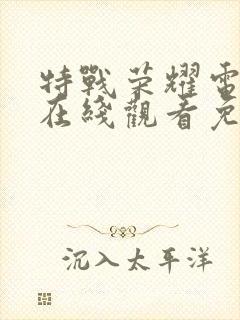 特戰榮耀電
在綫觀看免
沉入太平洋